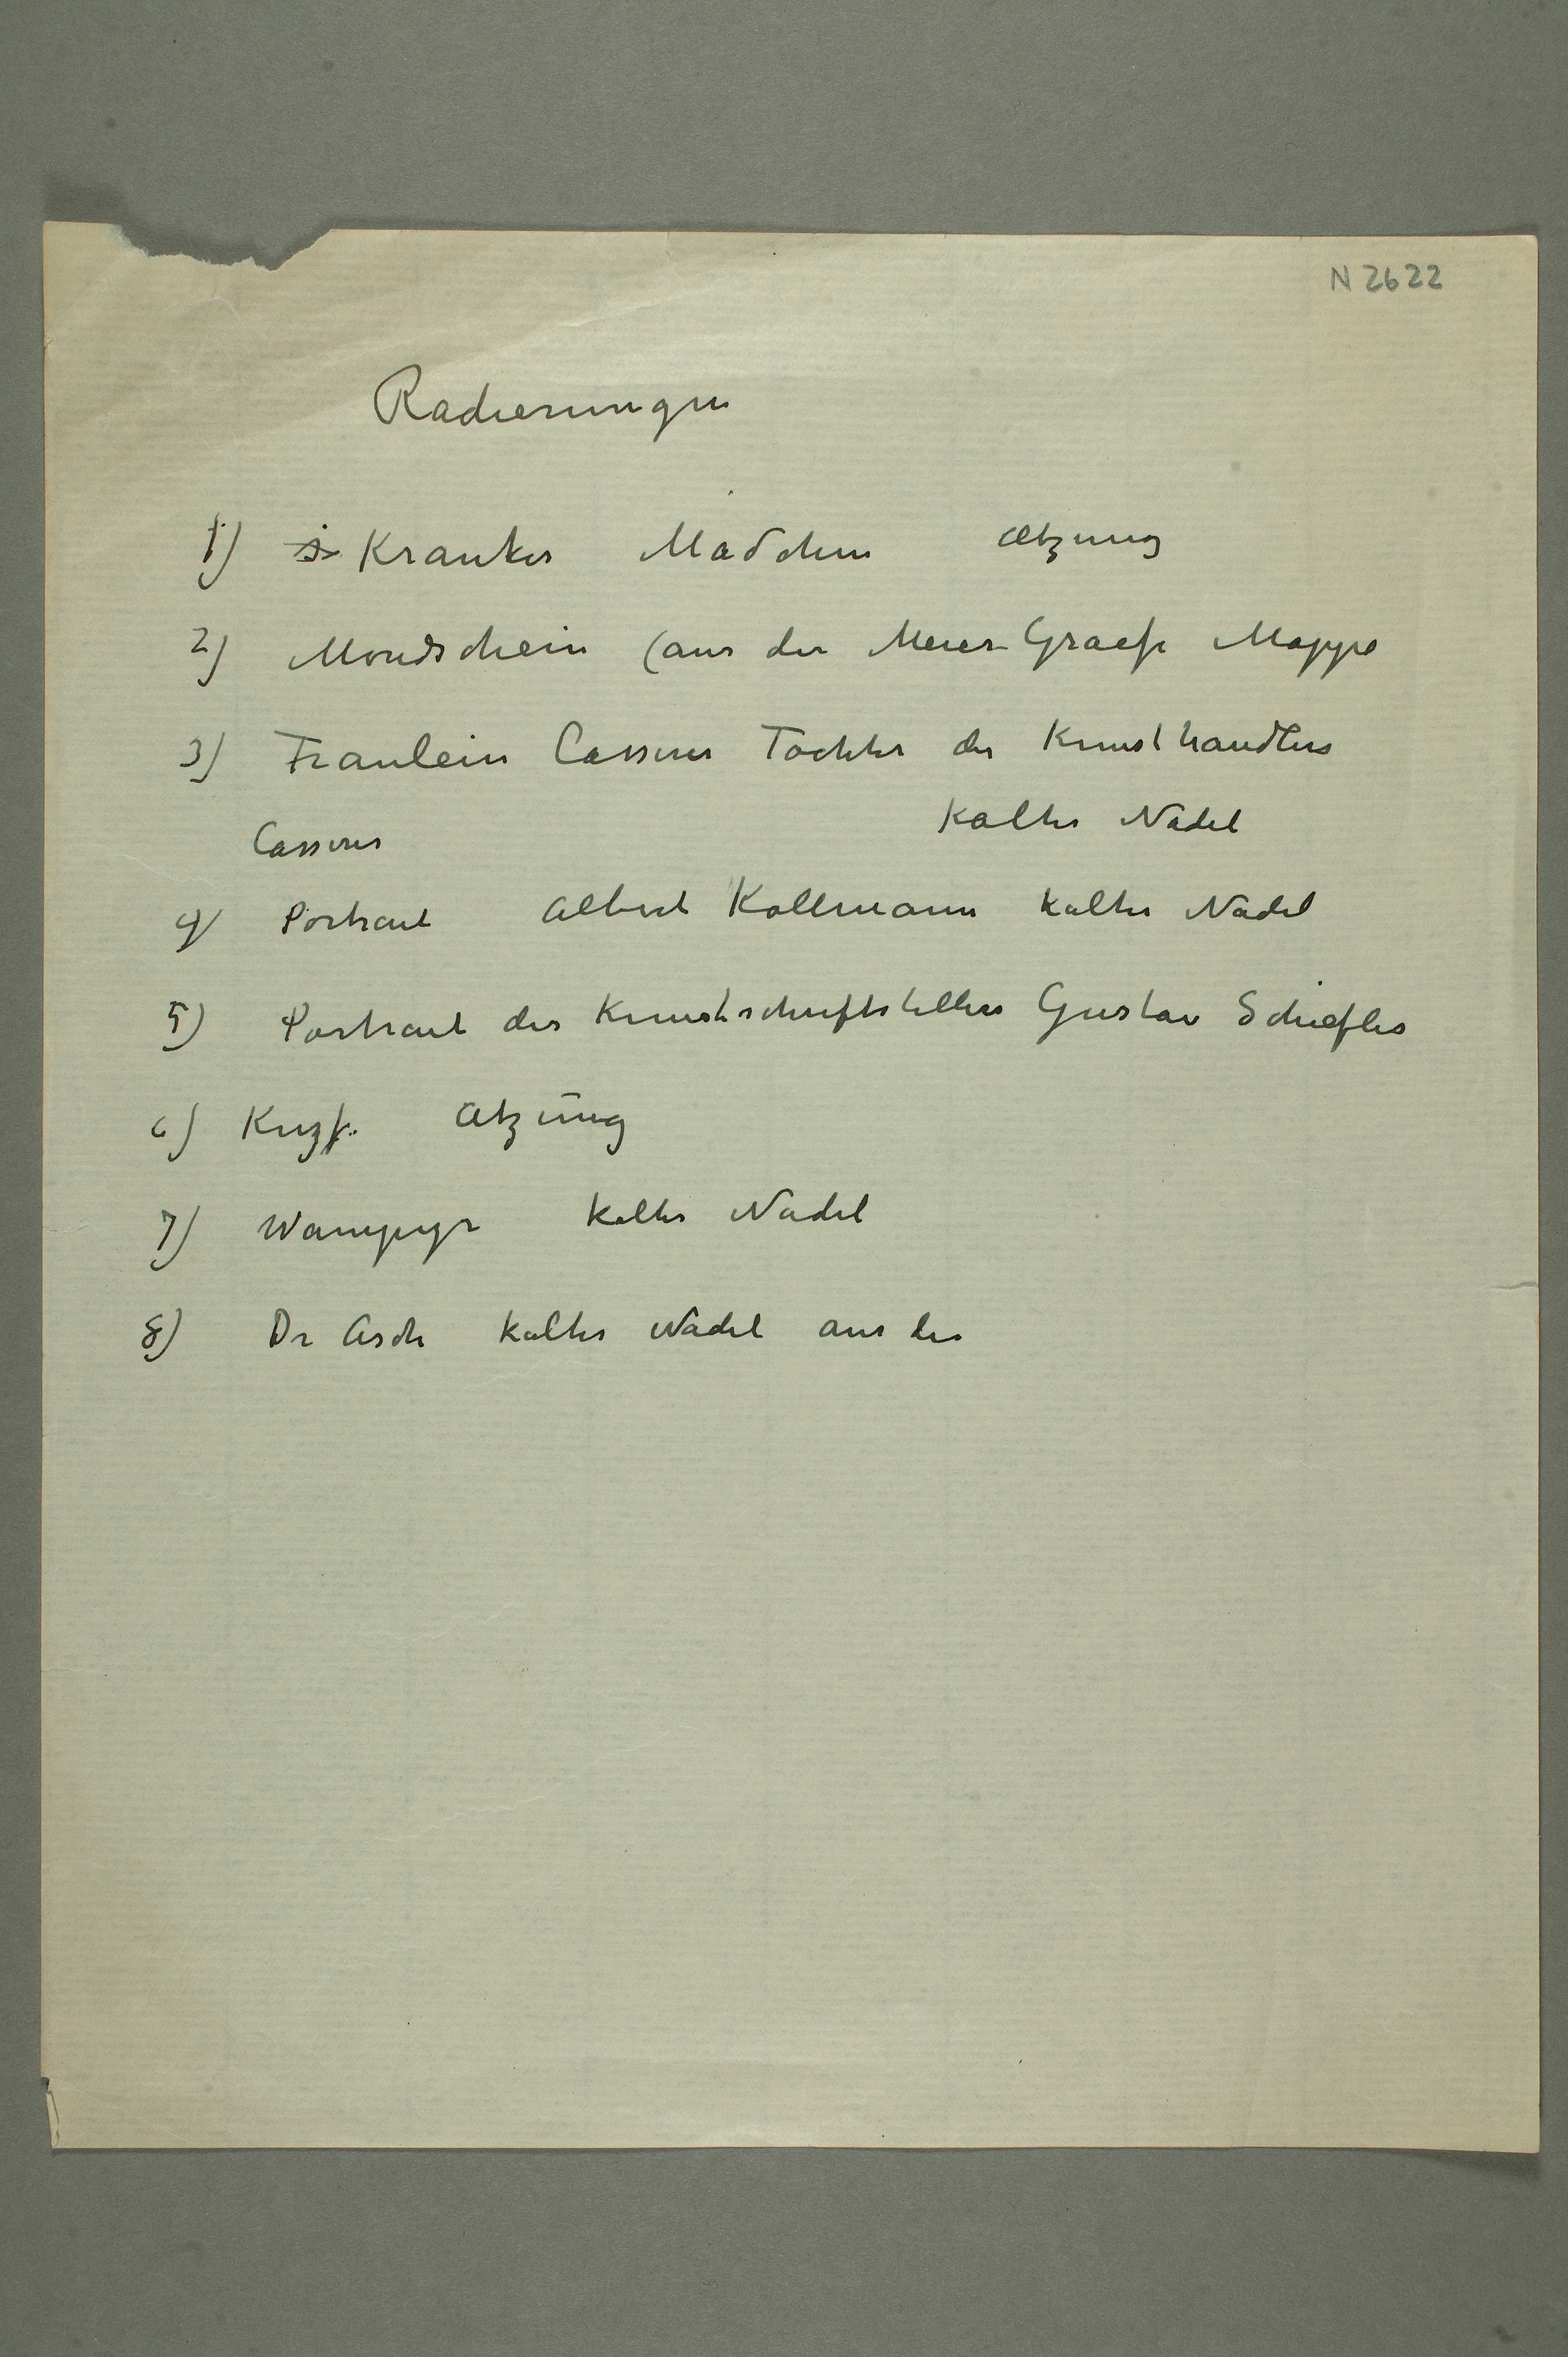 N 2622
Radierungen
1) Krankes Mädchen Ätzung
2) Mondschein (aus der Meier-Graefe Mappe
3) Fraulein Cassirer Tochter des Kunsthandlers
Cassirer Kalter Nadel
4) Portrait Albert Kollmann kalter Nadel
5) Portrait des Kunstschriftstellers Gustav Schiefler
6) Ätzung
7) Wampyr kalter Nadel
8) Dr Asch kalter Nadel aus der